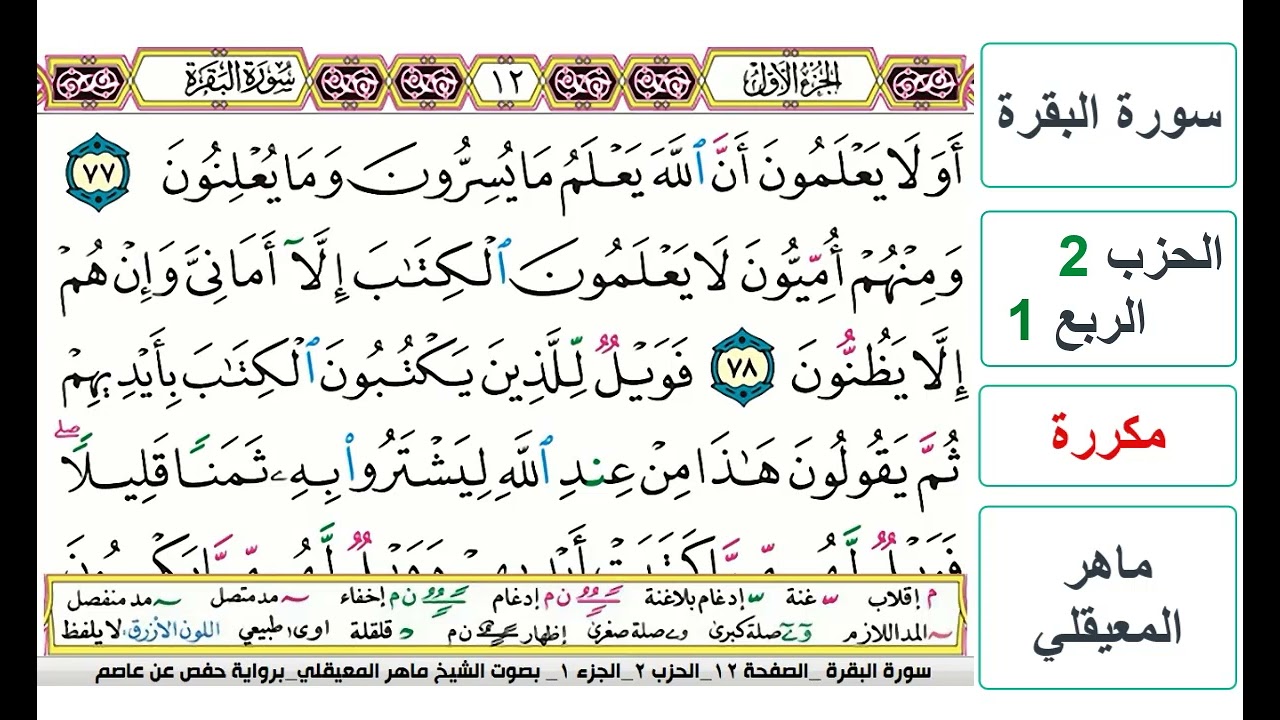 سُورَةُ البَقَرَة
١٢
الجُزءُ الأَوَّلُ
أَوَلَا يَعْلَمُونَ أَنَّ ٱللَّهَ يَعْلَمُ مَا يُسِرُّونَ وَمَا يُعْلِنُونَ ٧٧
وَمِنْهُمْ أُمِّيُّونَ لَا يَعْلَمُونَ ٱلْكِتَٰبَ إِلَّآ أَمَانِىَّ وَإِنْ هُمْ
إِلَّا يَظُنُّونَ ٧٨ فَوَيْلٌ لِّلَّذِينَ يَكْتُبُونَ ٱلْكِتَٰبَ بِأَيْدِيهِمْ
ثُمَّ يَقُولُونَ هَٰذَا مِنْ عِندِ ٱللَّهِ لِيَشْتَرُوا۟ بِهِۦ ثَمَنًا قَلِيلًا ۖ
فَوَيْلٌ لَّهُم مِّمَّا كَتَبَتْ أَيْدِيهِمْ وَوَيْلٌ لَّهُم مِّمَّا يَكْسِبُونَ
م إقلاب غنة إدغام بلاغنة ن م إدغام ن م إخفاء مد متصل مد منفصل
المد اللازم صلة كبرى صلة صغرى إظهار ن م قلقلة اوى طبيعي اللون الأزرق لا يلفظ
سورة البقرة _الصفحة ١٢_الحزب ٢_الجزء ١_ بصوت الشيخ ماهر المعيقلي_برواية حفص عن عاصم
سورة البقرة
الحزب 2
الربع 1
مكررة
ماهر
المعيقلي